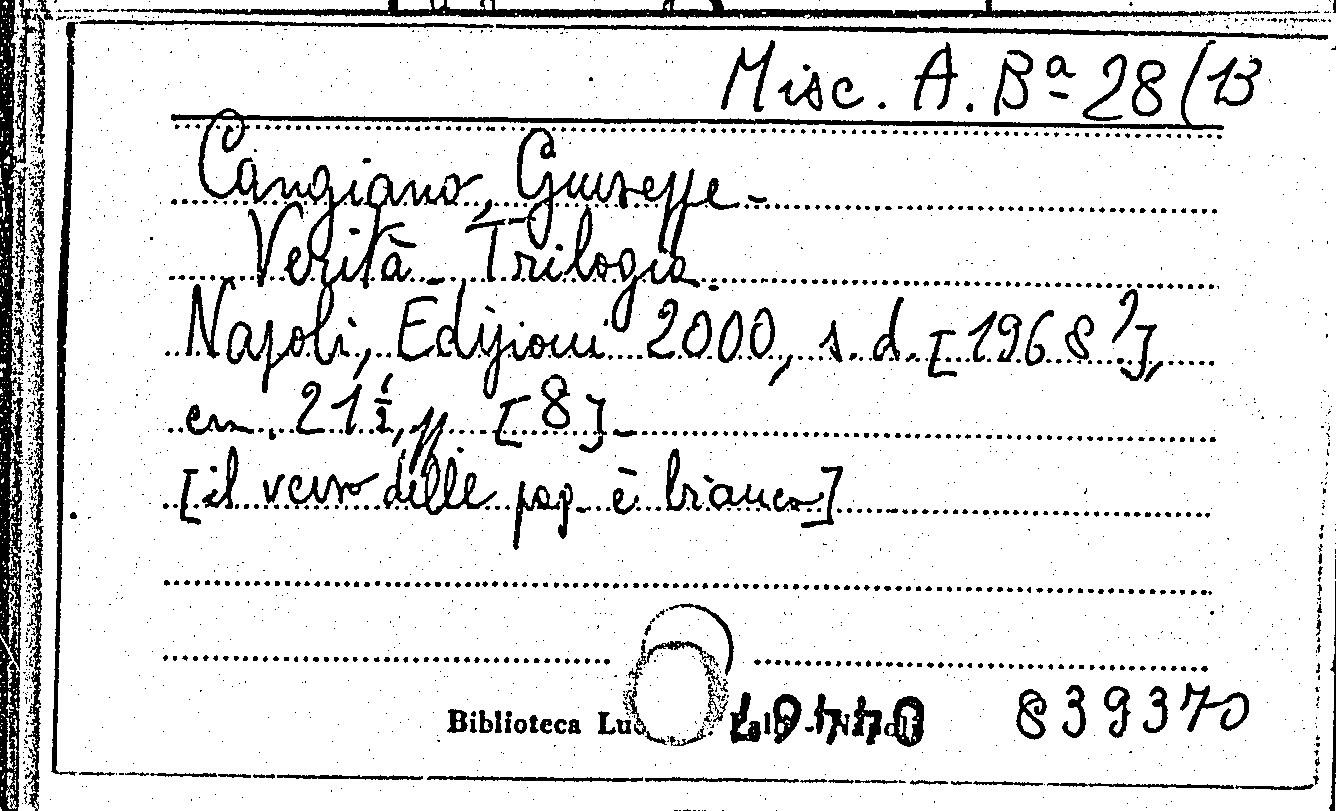 Misc. A. Bª 28 (13
Cangiano, Giuseppe -
Verità - Trilogia.
Napoli, Edizioni 2000, s. d. [1968?],
cm. 21 ½, pp. [8] -
[il verso delle pag. è bianco]
Biblioteca Napoli
839370